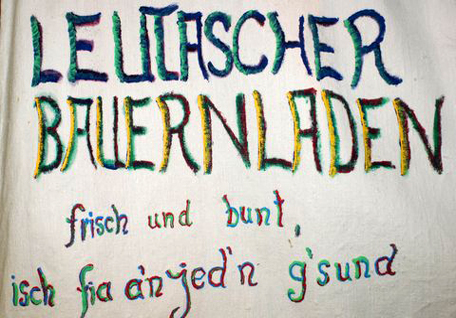 LEUTASCHER
BAUERNLADEN
frisch und bunt,
isch fia a'n jed'n g'sund